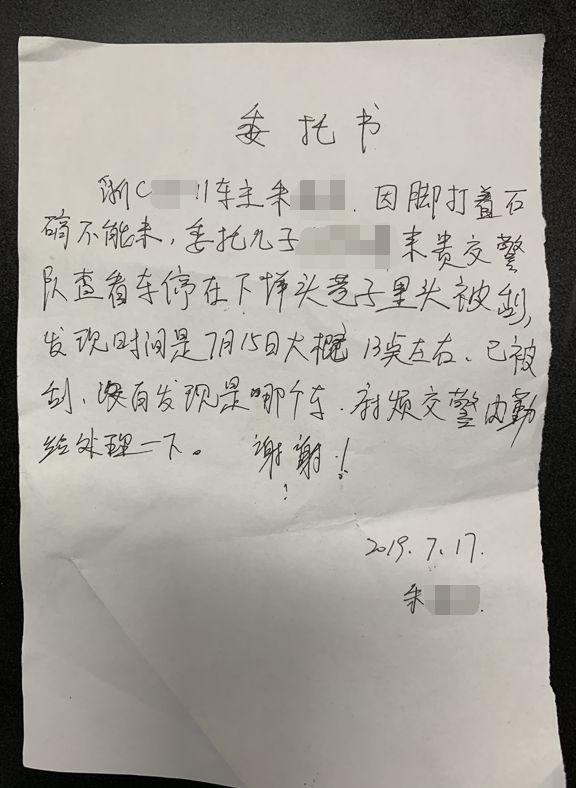 委托书
浙C 11车主朱 . 因脚打着石
膏不能来,委托儿子 来贵交警
队查看车停在下垟头巷子里头被刮,
发现时间是7月15日大概13点左右、已被
刮、没有发现是哪个车.麻烦交警内勤
给处理一下。 谢谢!
2019.7.17.
朱 .